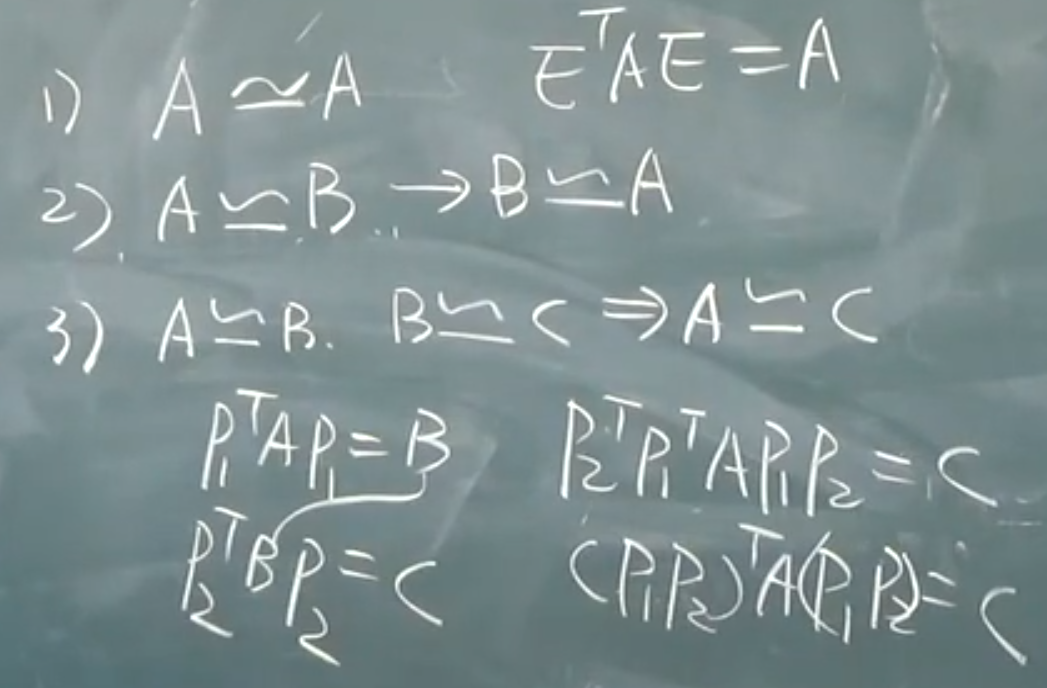 1) A ≃ A EᵀAE = A
2) A ≌ B → B ≌ A
3) A ≌ B. B ≌ C ⇒ A ≌ C
P₁ᵀAP₁ = B P₂ᵀP₁ᵀAP₁P₂ = C
P₂ᵀBP₂ = C (P₁P₂)ᵀA(P₁P₂) = C